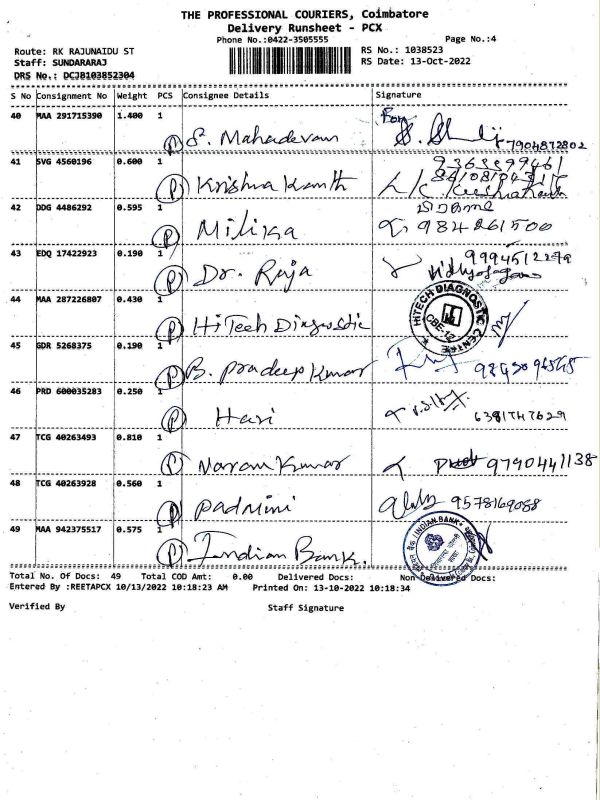 THE PROFESSIONAL COURIERS, Coimbatore
Delivery Runsheet - PCX
Phone No.:0422-3505555 Page No.:4
Route: RK RAJUNAIDU ST RS No.: 1038523
Staff: SUNDARARAJ RS Date: 13-Oct-2022
DRS No.: DCJB103852304
S No Consignment No Weight PCS Consignee Details Signature
40 MAA 291715390 1.400 1
P S. Mahadevan 7904872802
41 SVG 4560196 0.600 1
P Krishna Kanth
42 DDG 4486292 0.595 1
P Milika 984261500
43 EDQ 17422923 0.190 1
P Dr. Raja
44 MAA 287226807 0.430 1
P HiTech Diagnostic HITECH DIAGNOSTIC CENTRE CBE-12
45 GDR 5268375 0.190 1
P B. Pradeep Kumar
46 PRD 600035283 0.250 1
P Hari 6381747629
47 TCG 40263493 0.810 1
P Naran Kumar 9790441138
48 TCG 40263928 0.560 1
P Padmini 9578169088
49 MAA 942375517 0.575 1
P Indian Bank. INDIAN BANK
Total No. Of Docs: 49 Total COD Amt: 0.00 Delivered Docs: Non Delivered Docs:
Entered By :REETAPCX 10/13/2022 10:18:23 AM Printed On: 13-10-2022 10:18:34
Verified By Staff Signature